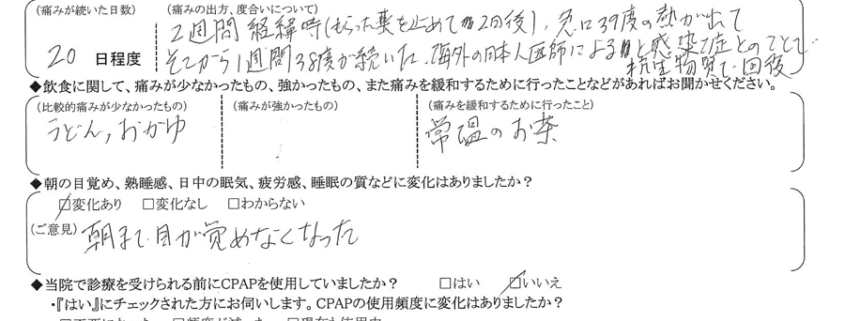 (痛みが続いた日数) (痛みの出方、度合いについて)
20 日程度
2週間経緯時(もらった薬を止めて2日後)、急に39度の熱が出て
そこから1週間38度が続いた。海外の日本人医師によると感染症とのことで
抗生物質で回復
◆飲食に関して、痛みが少なかったもの、強かったもの、また痛みを緩和するために行ったことなどがあればお聞かせください。
(比較的痛みが少なかったもの) (痛みが強かったもの) (痛みを緩和するために行ったこと)
うどん,おかゆ 常温のお茶
◆朝の目覚め、熟睡感、日中の眠気、疲労感、睡眠の質などに変化はありましたか?
☑変化あり □変化なし □わからない
(ご意見) 朝まで目が覚めなくなった
◆当院で診療を受けられる前にCPAPを使用していましたか? □はい ☑いいえ
・『はい』にチェックされた方にお伺いします。CPAPの使用頻度に変化はありましたか?